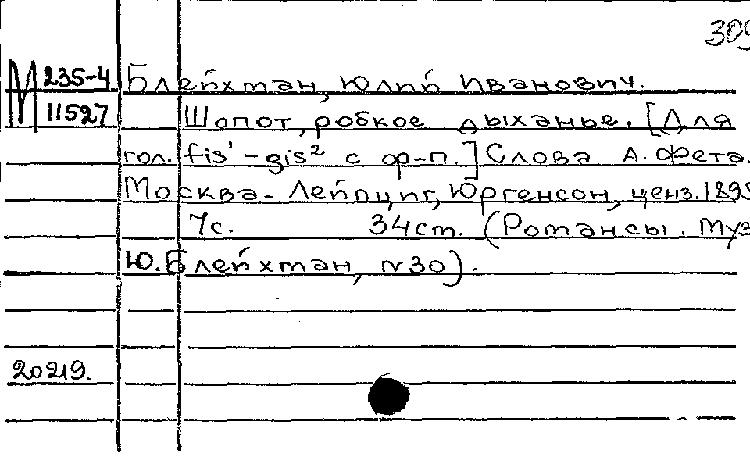 309
М 235-4
11527
Блейхман, Юлий Иванович.
Шопот, робкое дыханье. [Для
гол. fis¹-gis² с ф-п.] Слова А. Фета.
Москва-Лейпциг, Юргенсон, ценз. 1895
7с. 34см. (Романсы. Муз
Ю. Блейхман, N30).
20219.